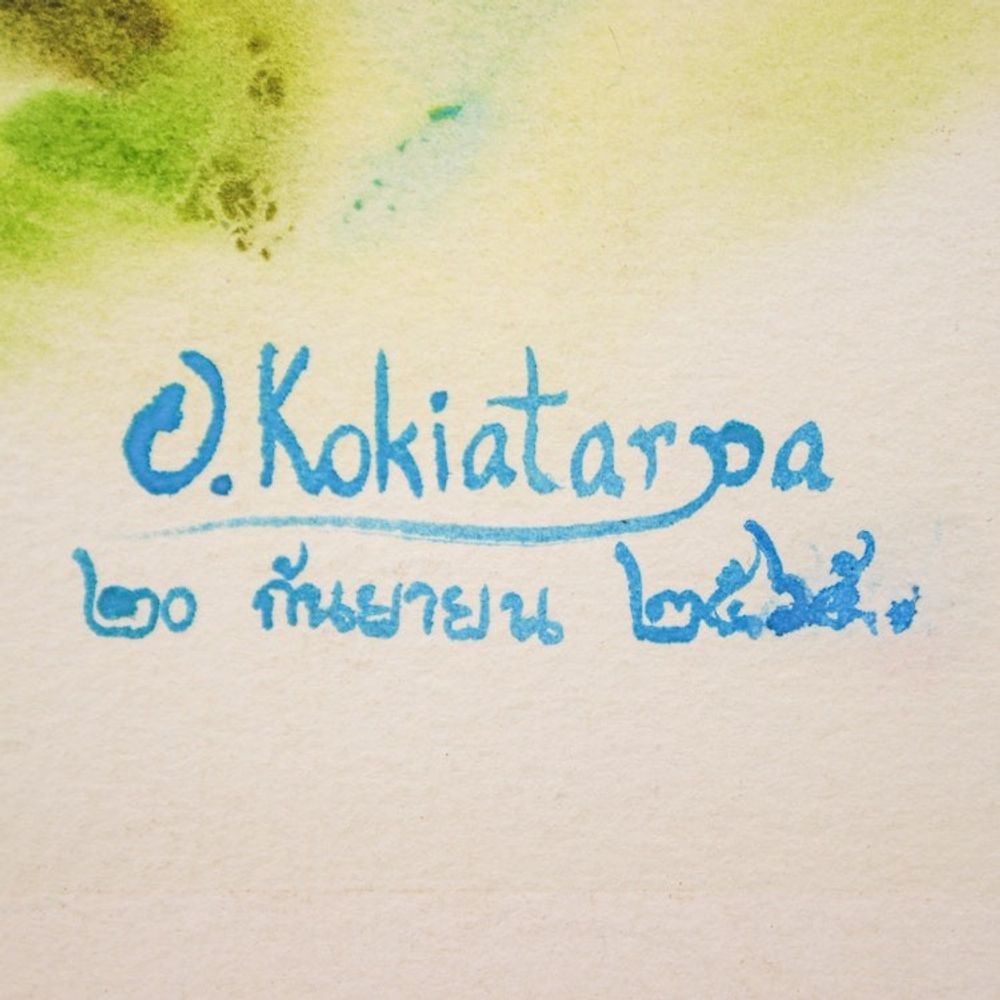 O. Kokiatarpa
๒๐ กันยายน ๒๕๖๕.